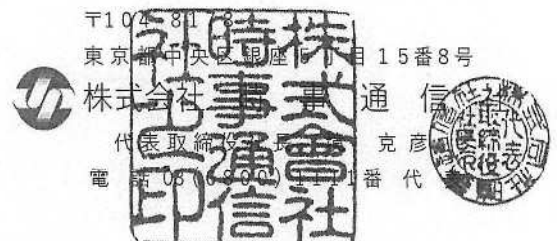 〒104-8178
東京都中央区銀座5丁目15番8号
株式会社 時事通信社
代表取締役社長 克彦
電話 03(6800)1111番 代表
株式會社
時事通信
社之印